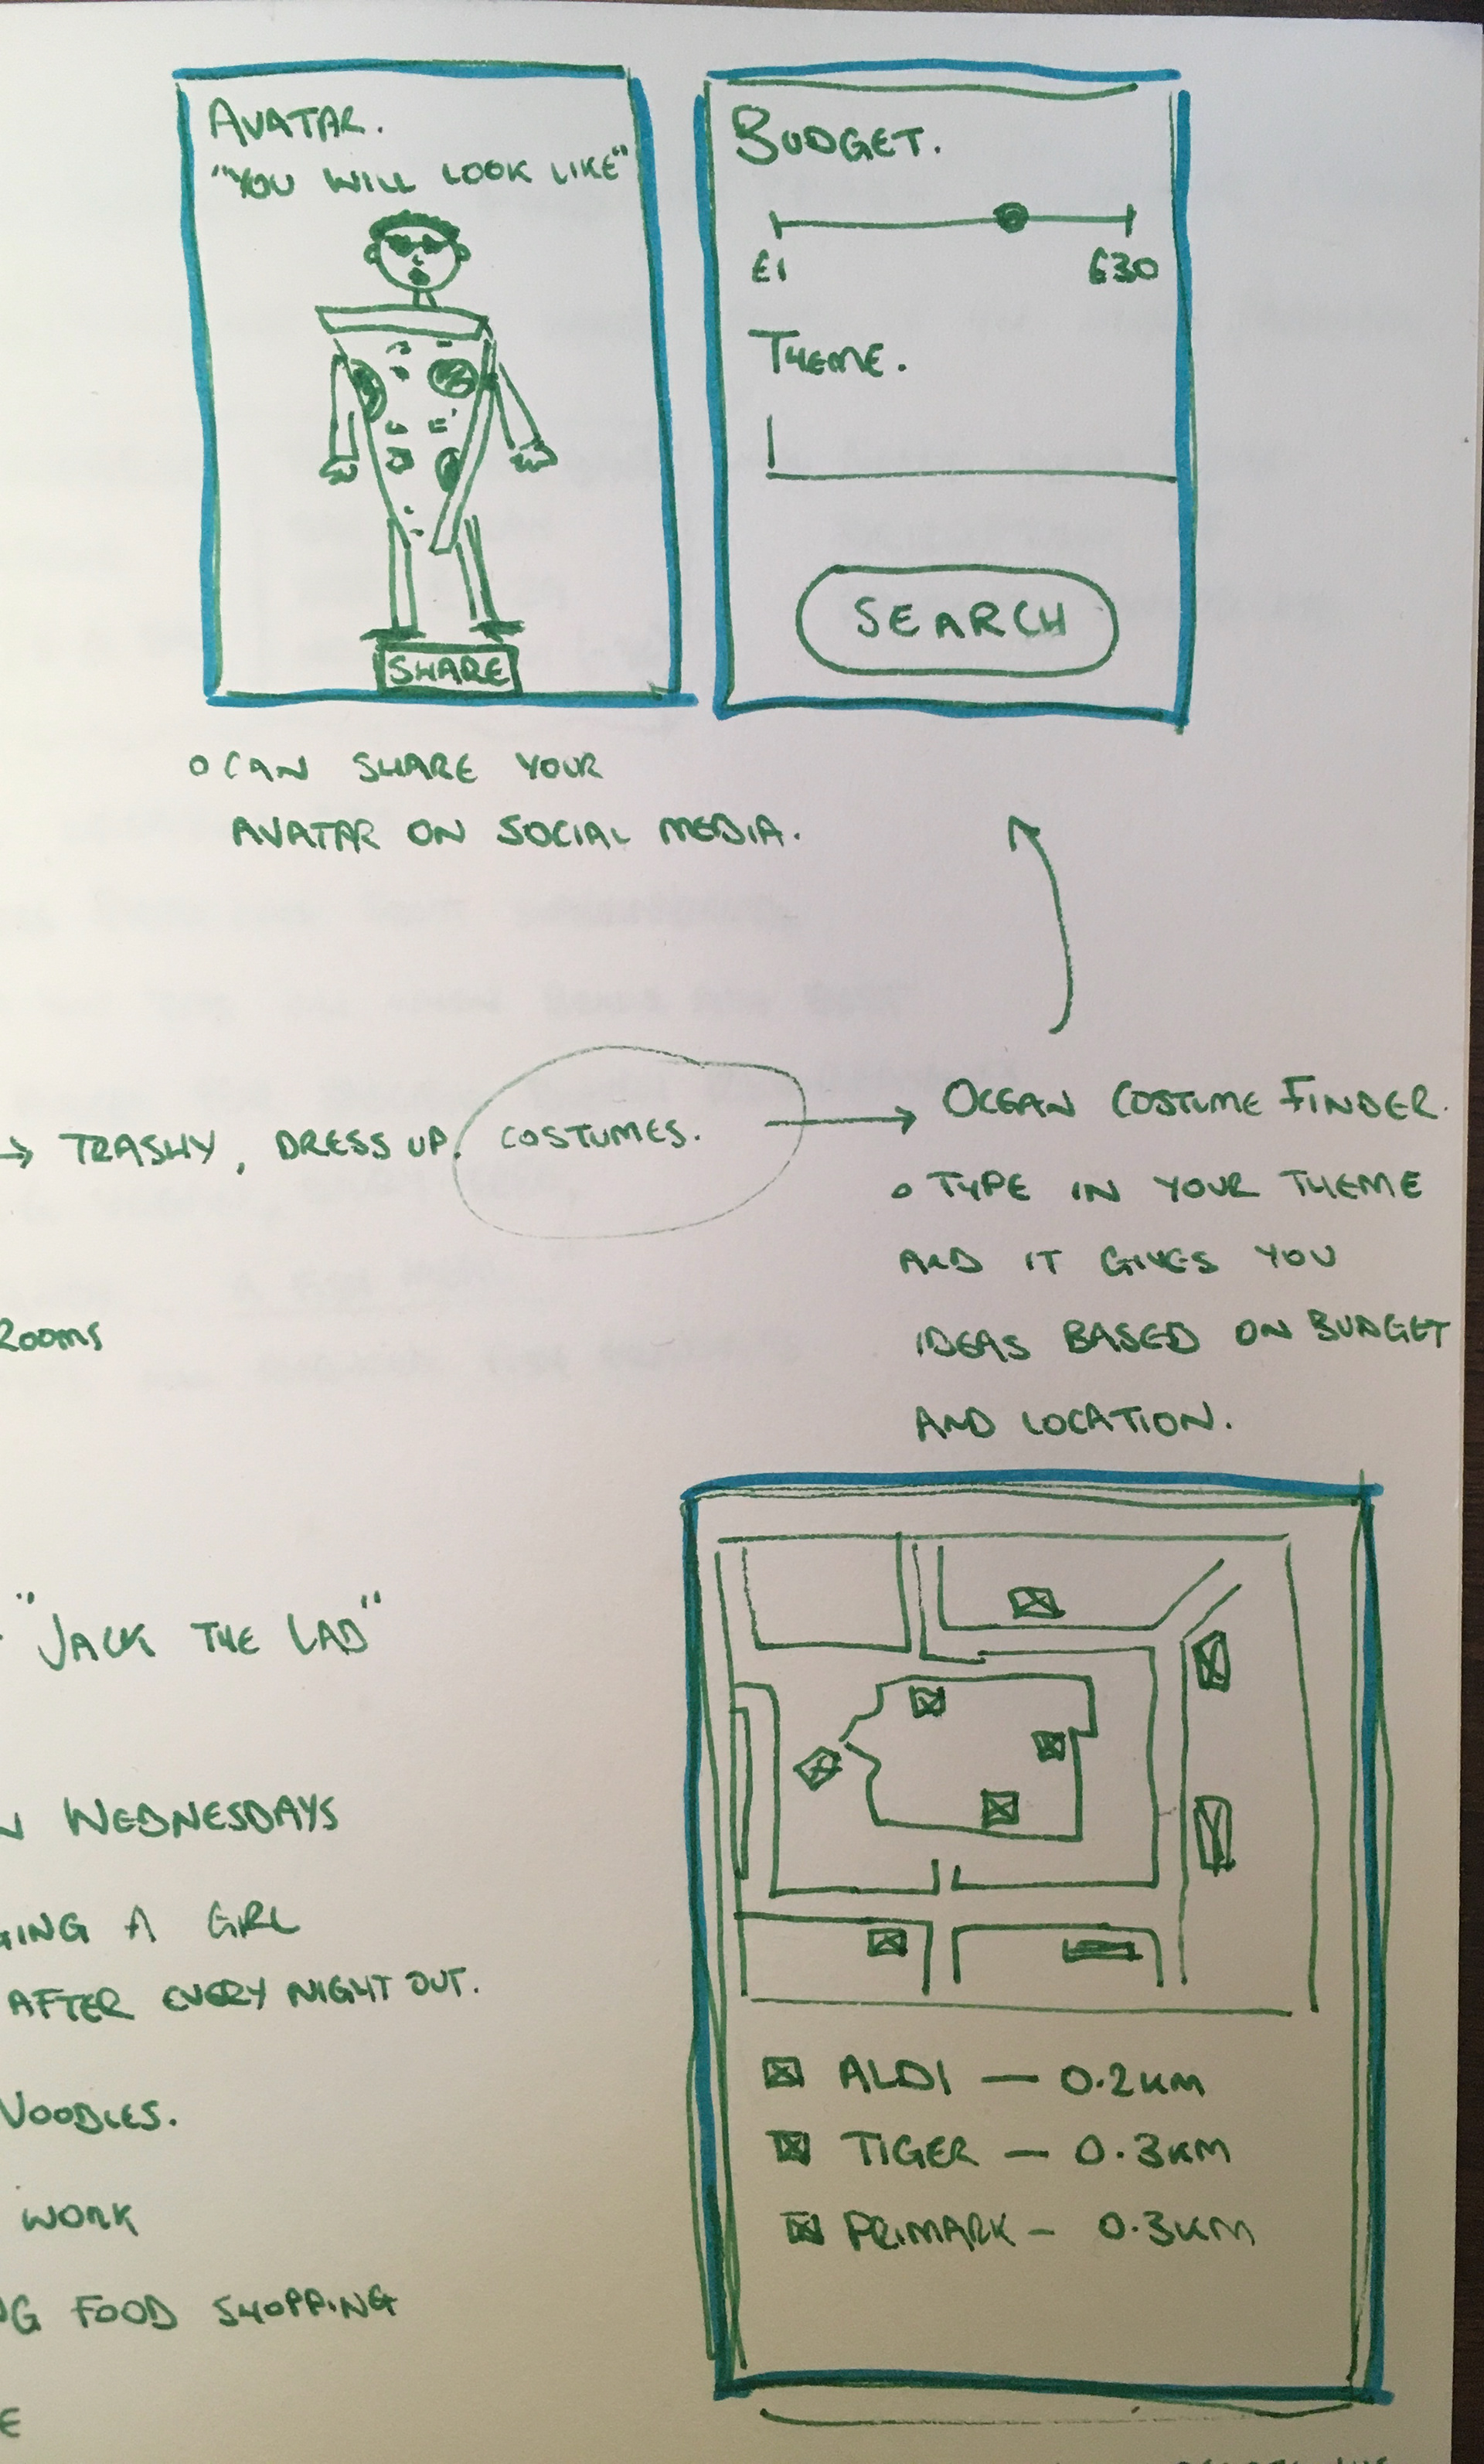 AVATAR.
"YOU WILL LOOK LIKE"
SHARE
BUDGET.
£1 £30
THEME.
SEARCH
o CAN SHARE YOUR
AVATAR ON SOCIAL MEDIA.
→ TRASHY, DRESS UP. COSTUMES. → OCEAN COSTUME FINDER.
o TYPE IN YOUR THEME
AND IT GIVES YOU
IDEAS BASED ON BUDGET
AND LOCATION.
ROOMS
"JACK THE LAD"
WEDNESDAYS
A GIRL
AFTER EVERY NIGHT OUT.
NOODLES.
WORK
FOOD SHOPPING
ALDI — 0.2KM
TIGER — 0.3KM
PRIMARK — 0.3KM